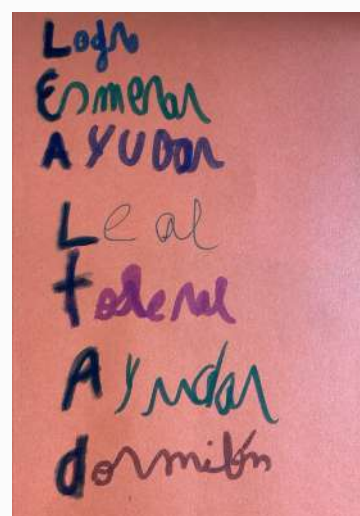 Logro
Esmerar
AYUDAR
Leal
Tolerar
Ayudar
dormilón